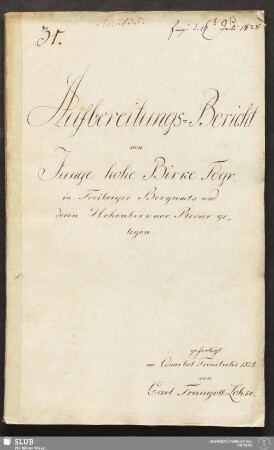 31.
Aufbereitungs-Bericht
von
Junge hohe Birke Fdgr.
in Freiberger Bergamts und
deren Hohenbirkner Revier ge,
legen
gefertigt
im Quartal Trinitatis 1828
von
Carl Traugott Lohse.
SLUB
Wir führen Wissen.